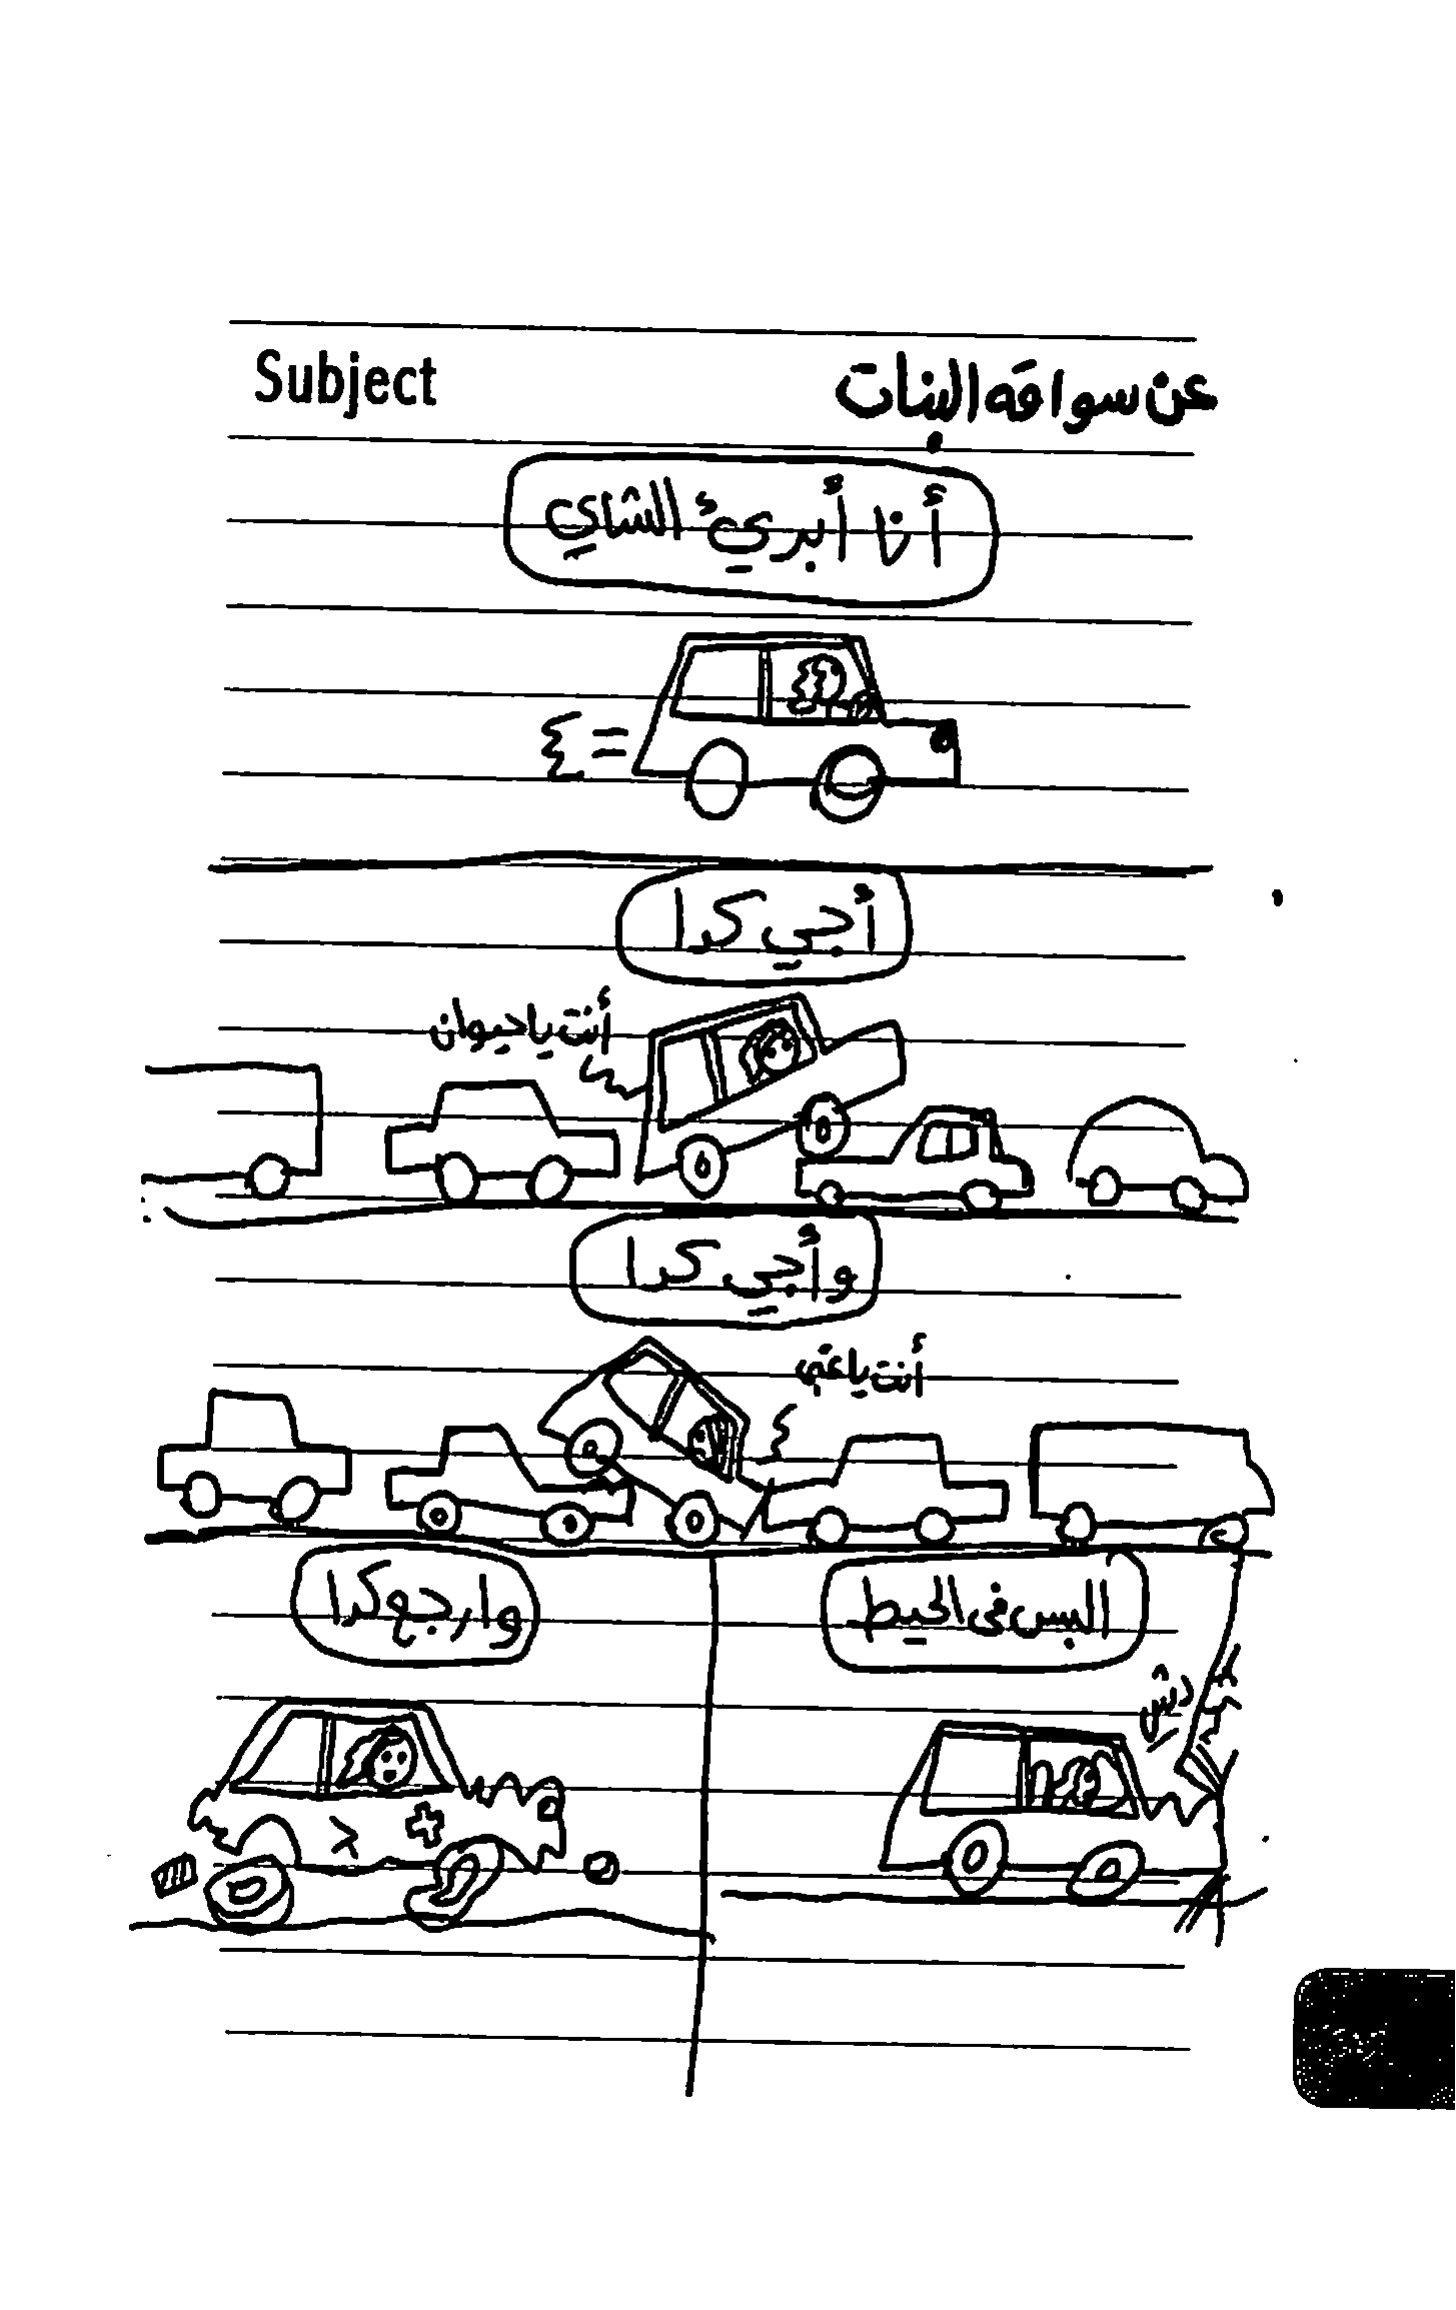 Subject
عن سواقه البنات
أنا أبريئ الشاي
أجي كدا
أنت يا حيوان
وأجي كدا
أنت يا غبي
البس في الحيط
وارجع كدا
دش